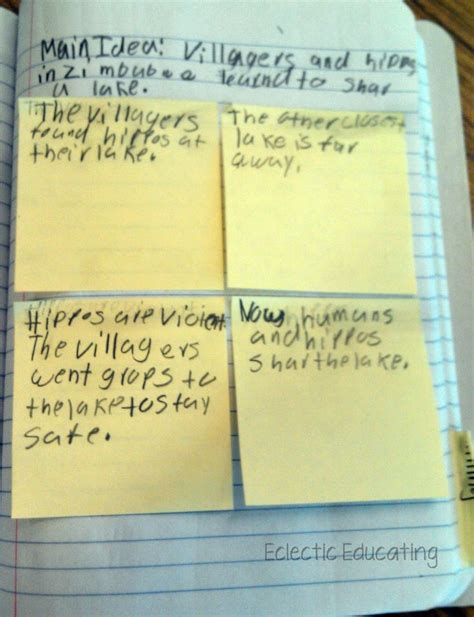 Main Idea: Villagers and hippos
in Zimbubwe learnd to shar
a lake.
The villagers
found hippos at
their lake.
The other closest
lake is far
away.
Hippos are violent
The villagers
went grops to
the lake to stay
safe.
Now, humans
and hippos
shar the lake.
Eclectic Educating